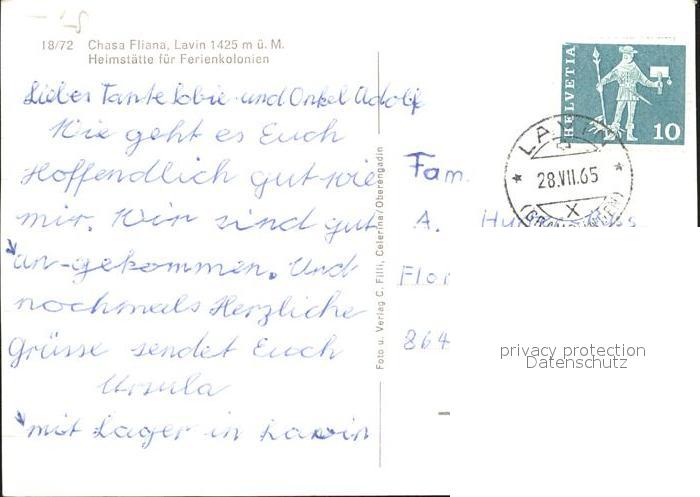 18/72 Chasa Fliana, Lavin 1425 m ü. M.
Heimstätte für Ferienkolonien
Liebes Tante und Onkel Adolf
Wie geht es Euch
Hoffendlich gut wie
mir. Wir sind gut
an-gekommen. Und
nochmals Herzliche
Grüsse sendet Euch
Ursula
mit Lager in Lavin
Foto u. Verlag C. Filli, Celerina/Oberengadin
HELVETIA
10
LAVIN
28.VII.65
X
(GRAUBÜNDEN)
Fam.
A.
Flor
864
privacy protection
Datenschutz